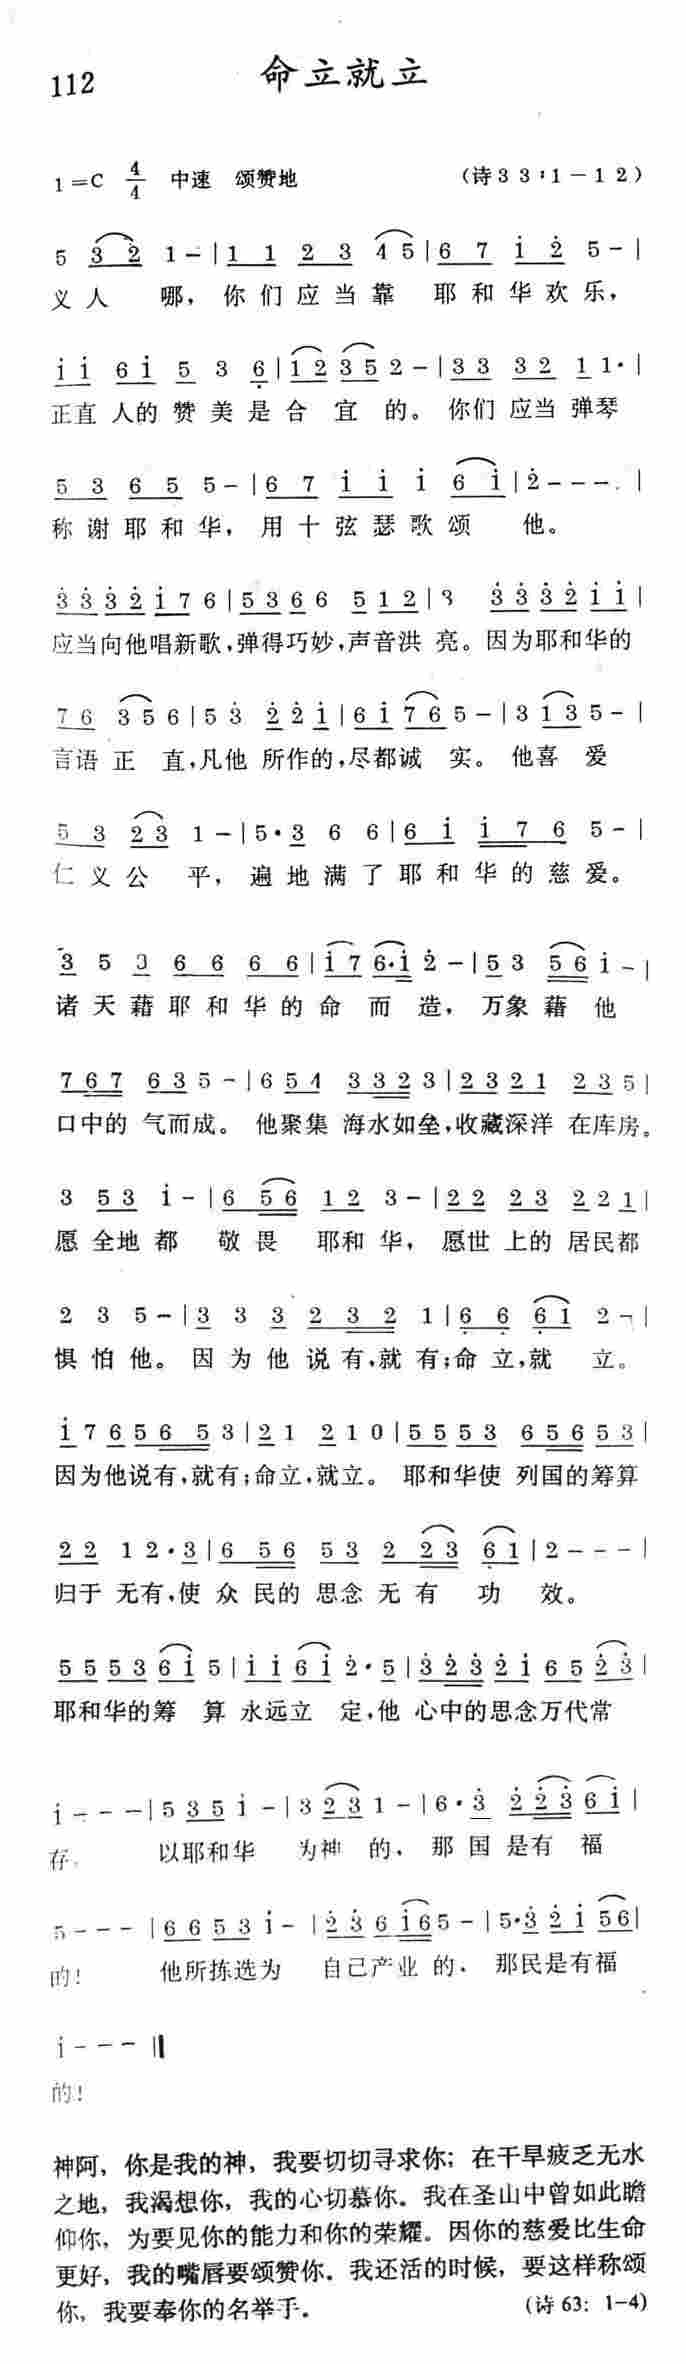 112
命立就立
1=C 4/4 中速 颂赞地 (诗33:1-12)
5 3 2 1 - | 1 1 2 3 4 5 | 6 7 i 2 5 - |
义人 哪，你们应当靠 耶和华欢乐，
i i 6 i 5 3 6 | 1 2 3 5 2 - | 3 3 3 2 1 1· |
正直人的赞美是合 宜 的。你们应当弹琴
5 3 6 5 5 - | 6 7 i i i 6 i | 2 - - - |
称谢耶和华，用十弦瑟歌颂 他。
3 3 3 2 i 7 6 | 5 3 6 6 6 5 1 2 | 3 3 3 3 2 i i |
应当向他唱新歌，弹得巧妙，声音洪 亮。因为耶和华的
7 6 3 5 6 | 5 3 2 2 i | 6 i 7 6 5 - | 3 i 3 5 - |
言语 正 直，凡他 所作的，尽都诚 实。他喜 爱
5 3 2 3 1 - | 5· 3 6 6 | 6 i i 7 6 5 - |
仁义公 平，遍地满了耶和华的慈爱。
3 5 3 6 6 6 6 | i 7 6· i 2 - | 5 3 5 6 i - |
诸天藉耶和华的命而造，万象藉他
7 6 7 6 3 5 - | 6 5 4 3 3 2 3 | 2 3 2 1 2 3 5 |
口中的 气而成。他聚集 海水如垒，收藏深洋 在库房。
3 5 3 i - | 6 5 6 1 2 3 - | 2 2 2 3 2 2 1 |
愿全地都 敬畏 耶和华，愿世上的居民都
2 3 5 - | 3 3 3 2 3 2 1 | 6 6 6 1 2 - |
惧怕他。因为他说有，就有；命立，就 立。
i 7 6 5 6 5 3 | 2 1 2 1 0 | 5 5 5 3 6 5 6 5 3 |
因为他说有，就有；命立，就立。耶和华使 列国的筹算
2 2 1 2· 3 | 6 5 6 5 3 2 2 3 6 1 | 2 - - - |
归于 无有，使众民的思念无有 功 效。
5 5 5 3 6 i 5 | i i 6 i 2· 5 | 3 2 3 2 i 6 5 2 3 |
耶和华的筹 算 永远立 定，他 心中的思念万代常
i - - - | 5 3 5 i - | 3 2 3 1 - | 6· 3 2 2 3 6 i |
存， 以耶和华 为神 的，那国是有 福
5 - - - | 6 6 5 3 i - | 2 3 6 i 6 5 - | 5· 3 2 i 5 6 |
的！ 他所拣选为 自己产业的，那民是有福
i - - - ‖
的！
神阿，你是我的神，我要切切寻求你；在干旱疲乏无水
之地，我渴想你，我的心切慕你。我在圣山中曾如此瞻
仰你，为要见你的能力和你的荣耀。因你的慈爱比生命
更好，我的嘴唇要颂赞你。我还活的时候，要这样称颂
你，我要奉你的名举手。 (诗63：1-4)